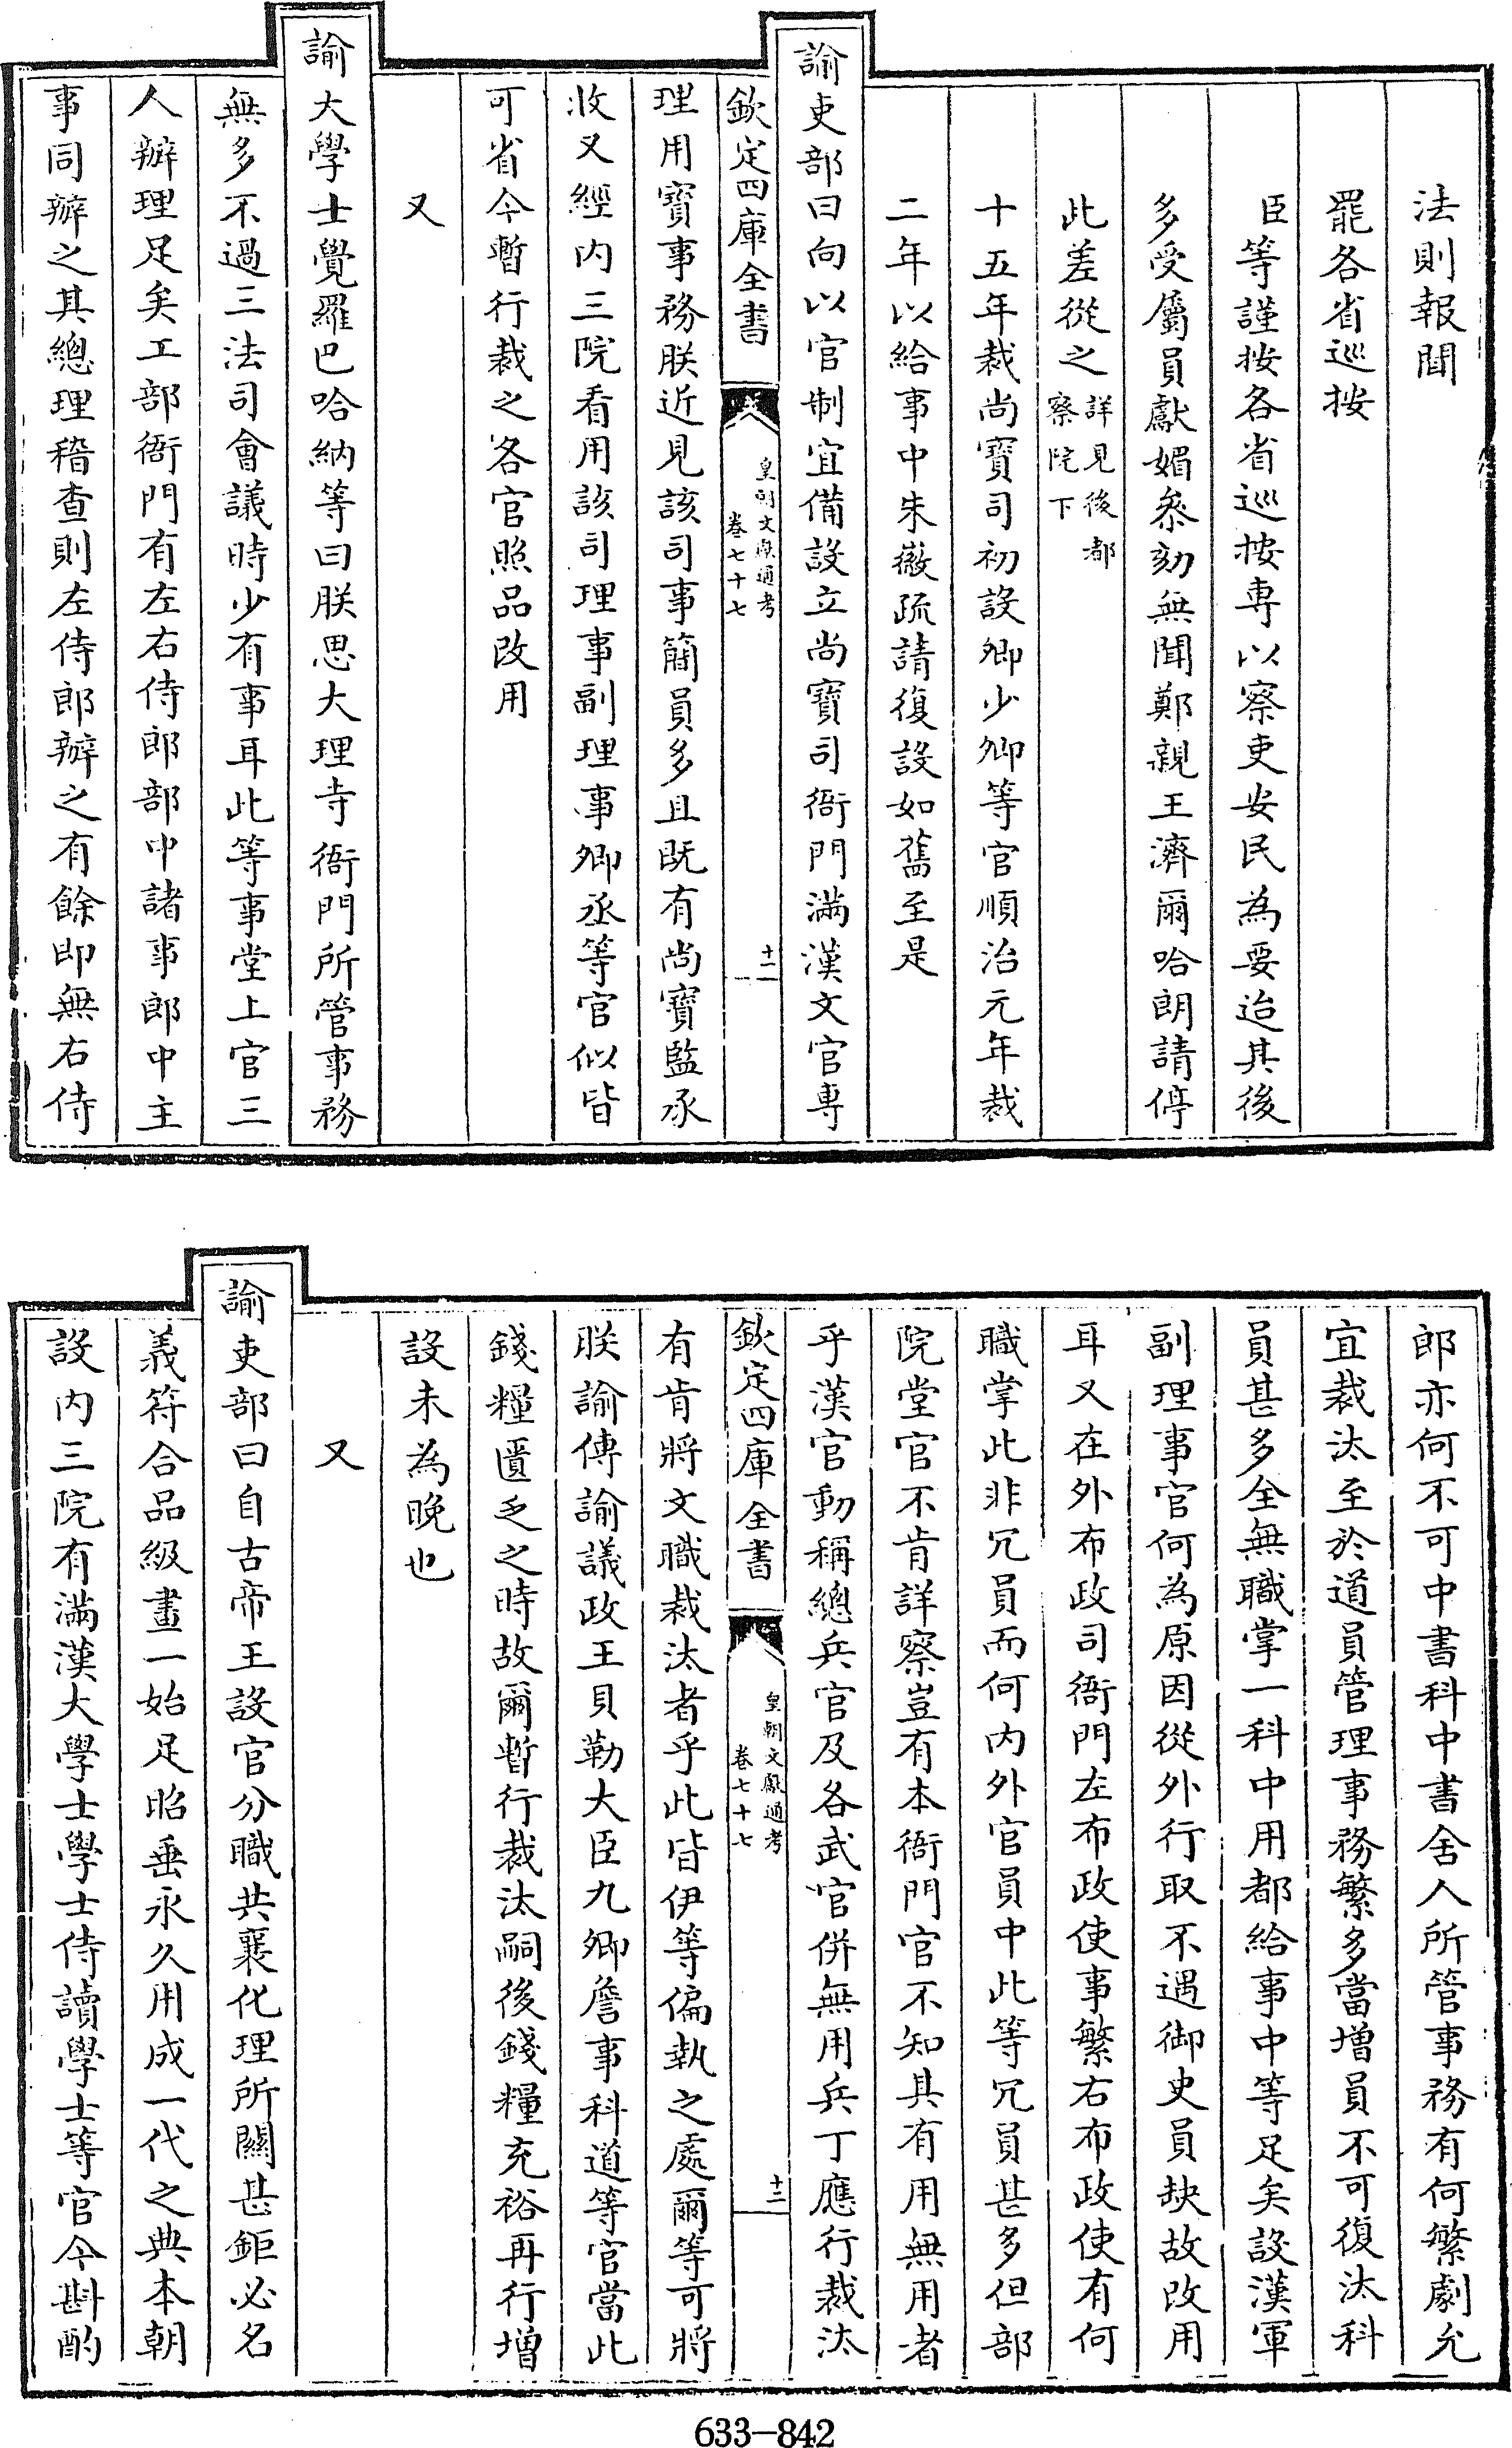 法則報聞
罷各省巡按
臣等謹按各省巡按専以察吏安民為要迨其後
多受屬員獻媚叅劾無聞鄭親王濟爾哈朗請停
此差從之詳見後都
察院下
十五年裁尚寶司初設卿少卿等官順治元年裁
二年以給事中朱徽疏請復設如舊至是
諭吏部曰向以官制宜備設立尚寶司衙門滿漢文官専
欽定四庫全書
皇朝文獻通考
卷七十七
十二
理用寳事務朕近見該司事簡員多且既有尚寶監承
收又經内三院看用該司理事副理事卿丞等官似皆
可省今暫行裁之各官照品改用
又
諭大學士覺羅巴哈納等曰朕思大理寺衙門所管事務
無多不過三法司會議時少有事耳此等事堂上官三
人辦理足矣工部衙門有左右侍郎部中諸事郎中主
事同辦之其總理稽查則左侍郎辦之有餘即無右侍
郎亦何不可中書科中書舍人所管事務有何繁劇允
宜裁汰至於道員管理事務繁多當増員不可復汰科
員甚多全無職掌一科中用都給事中等足矣設漢軍
副理事官何為原因從外行取不遇御史員缺故改用
耳又在外布政司衙門左布政使事繁右布政使有何
職掌此非冗員而何内外官員中此等冗員甚多但部
院堂官不肯詳察豈有本衙門官不知具有用無用者
乎漢官動稱總兵官及各武官併無用兵丁應行裁汰
欽定四庫全書
皇朝文獻通考
卷七十七
十二
有肯將文職裁汰者乎此皆伊等偏執之處爾等可將
朕諭傳諭議政王貝勒大臣九卿詹事科道等官當此
錢糧匱乏之時故爾暫行裁汰嗣後錢糧充裕再行增
設未為晚也
又
諭吏部曰自古帝王設官分職共襄化理所關甚鉅必名
義符合品級畫一始足昭垂永久用成一代之典本朝
設内三院有滿漢大學士學士侍讀學士等官今斟酌
633-842